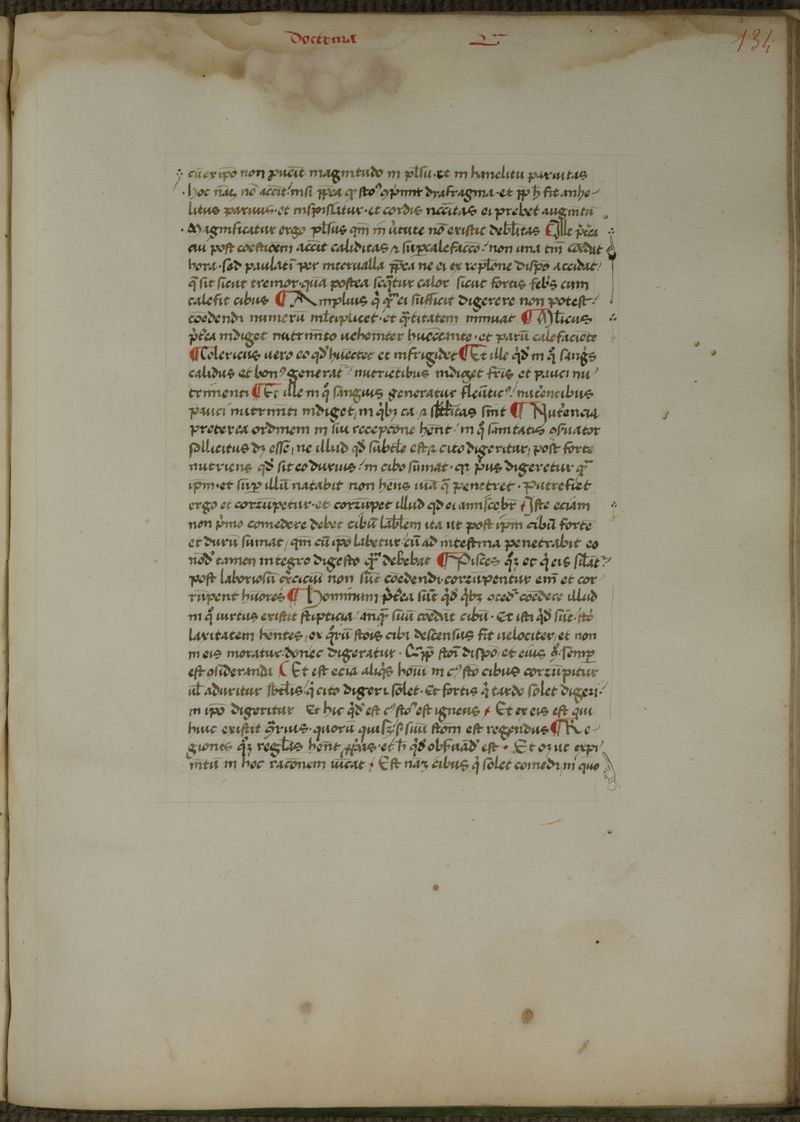 Doctrina 2ᵃ
134
cū ex ipo non ꝓueīt magnitudo in pl̄su · et in hanelitu paruitas
hoc nāq nō accit nisi ꝓp̄ea qꝛ stoꝰ ꝯp̄mit diafragma · et ꝓp̄ h̄ fit anhe
litus paruus · et inspissatur · et cordis nēcitas ei prebet augmtū
Magnificatur ergo pl̄sus qm̄ in ūtute nō existit deb̄litas ¶ Ille p̄tea
cui post coēstioem accit caliditas ⁊ sup̄calefacco non una tm̄ coēdat
hora · sed paulatī per interualla ꝓp̄ea ne ei ex replōne dispo accidat
q̄ sit sicut tremor · qua postea seq̄tur calor sicut fortis feb̄s cum
calefit cibus ¶ Amplius q̄ qꝰ ei sufficit digerere non potest
coedendi numerū ml̄tiplicet · et q̄ntitatem minuat ¶ Ml̄icus
p̄tea indiget nutrimto uehemter huectante · et parū calefaciete
¶ Colericus uero eo qd̄ huectet et infrigidet ¶ Et ille qd̄ in q̄ sangs
calidus et bonꝰ generat nutrietibus indiget fris et pauci nu
trimenti ¶ Et ille in q̄ sanguis generatur fleūticꝰ nut̄entibus
pauci nutrimti indiget, in qb̄ꝫ ca ⁊ sb̄tilitas sint ¶ Nut̄encia
preterea ordinem in sui recepcone hent in q̄ sanitatis ꝯs̄uator
sollicitus dꝫ esse, ne illud qd̄ subtile est ⁊ cito digeritur, post forte
nutriens qd̄ sit eo durius in cibo sumat · qꝛ p̄us digeretur q̄
ipm · et sup̄ illū natabit non hens uiā q̄ penetret · Putrefiet
ergo et corrūpetur · et corrūpet illud qd̄ ei amiscebr̄ Iste eciam
non p̄mo comedere debet cibū lablem ita ut post ipm cibū forte
et durū sumat, qm̄ cū ipo labetur cū ad intestina penetrabit eo
nōd̄ tamen integro digesto qꝰ debebat ¶ Pisces qꝫ et q̄ eis sil̄at
post laboriosū ex̄ciciū non sūt coedendi · corrūpentur em̄ et cor
rūpent hūores ¶ Hominum p̄tea sūt qd̄ qb̄ꝫ ꝯcedꝰ coēdere illud
in q̄ uirtus existit stiptica anq̄ suū coedat cibū · Et isti qd̄ sūt sto
laxitatem hentes, ex q̄rū stois cibi descensus fit uelociter, et non
in eis moratur donec digeratur · Cip̄ stoī dispo et eius ꝯ semp̄
est ꝯsideranda ¶ Et est ecia aliq̄s hoīu in cꝰ sto cibus corrūpitur
ul̄ aduritur sb̄tilis q̄ cito digeri solet · Et fortis q̄ tarde solet digeri
in ipo digeritur Et hic qd̄ est cꝰ stoꝰ est igneus Et ex eis est qui
huic existit ꝯrius · quorū quisqꝫ ẜm suū stom est regendus ¶ Re
giones qꝫ regl̄as hent ꝓprias · et h̄ qd̄ obs̄uād est · Et oꝫ ut expi
mtū in hoc racōnem uīcat Est naꝫ cibus q̄ solet comedi in quo